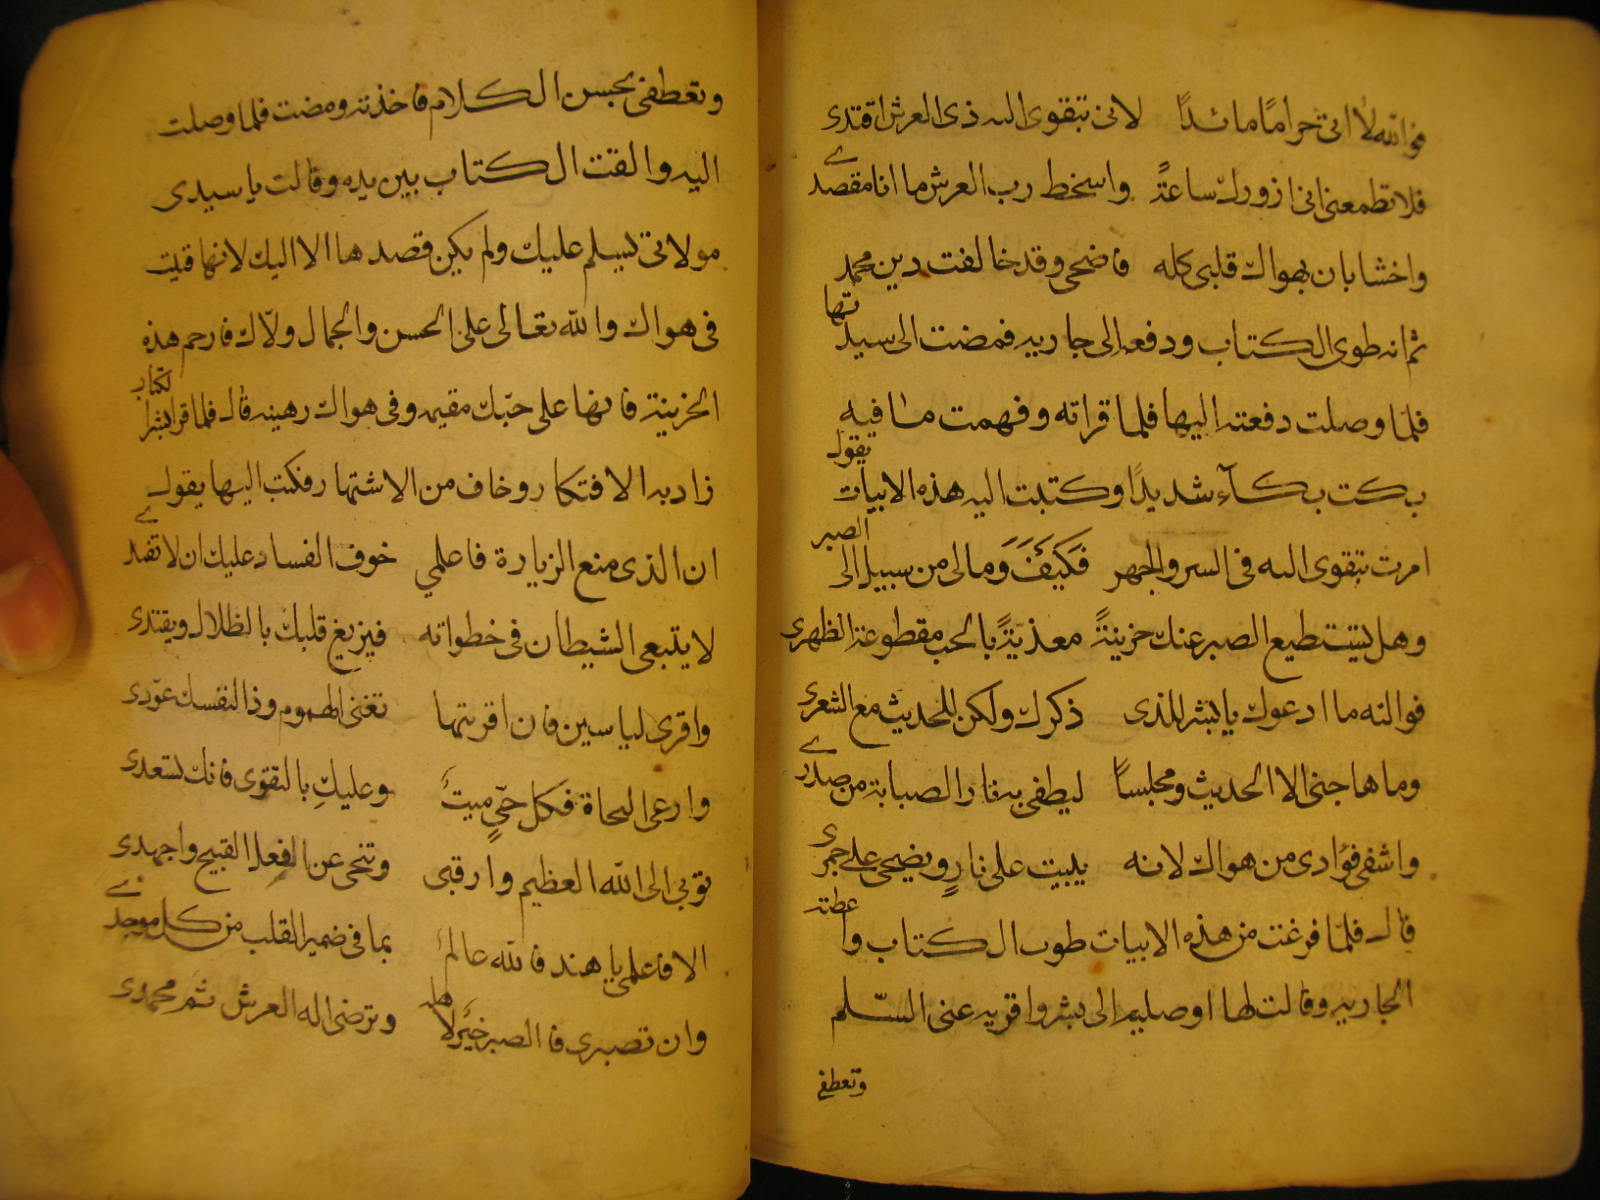 فوالله لا اتى حراما مائدًا لانى بتقوى اله ذى العرش اقتدى
فلا تطمعنى انى ازورك ساعةً واسخط رب العرش ما انا مقصدے
واخشا بان يهواك قلبى كله فاضحى وقد خالفت دين محمد
ثم انه طوى الكتاب ودفعه الى جاريه فمضت الى سيدتها
فلما وصلت دفعته اليها فلما قراته وفهمت ما فيه
بكت بكآء شديدًا وكتبت اليه هذه الابيات يقول
امرت بتقوى اله فى السر والجهر فكيف ومالى من سبيل الى الصبر
وهل يستطيع الصبر عنك حزينةً معذبةً بالحب مقطوعة الظهرى
فوالله ما ادعوك يا بشر للذى ذكرك ولكن للحديث مع الشعرى
وما هاجنى الا الحديث ومجلسًا ليطفى به نار الصبابة من صدرے
واشفى فؤادى من هواك لانه يبيت على نارٍ ويضحى على جمرى
قال فلما فرغت من هذه الابيات طوت الكتاب واعطته
الجاريه وقالت لها اوصليه الى بشر واقريه عنى السّلم
وتعطفى
وتعطفى بحسن الكلام فاخذته ومضت فلما وصلت
اليه والقت الكتاب بين يده وقالت يا سيدى
مولاتى تسلم عليك ولم يكن قصدها الا اليك لانها قتلت
فى هواك والله تعالى على الحسن والجمال ولّاك فارحم هذه
الحزينة فانها على حبّك مقيمه وفى هواك رهينه قال فلما قرا بشر الكتاب
زاد به الافتكار وخاف من الاشتهار فكتب اليها يقول
ان الذى منع الزيارة فاعلمي خوف الفساد عليك ان لا تفسدے
لا يتبعى الشيطان فى خطواته فيزيغ قلبك بالظلال ويقتدى
واقرى لياسين فان اقريتها تغنى الهموم وذا لنفسك عوّدى
وارعى النجاة فكل حّيٍ ميتٌ وعليكِ بالتقوى فانك تسعدى
توبي الى الله العظيم وارقبى وتنحى عن الفعل القبيح واجهدى
الا فاعلمى يا هند فالله عالمٌ بما فى ضمير القلب من كل موجدے
وان تصبرى فا الصبر خيرٌ لاهله وترضى اله العرش ثم محمدى